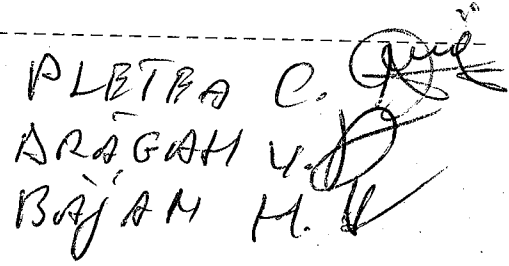 PLETEA C.
DRĂGAN V.
BĂJAN M.